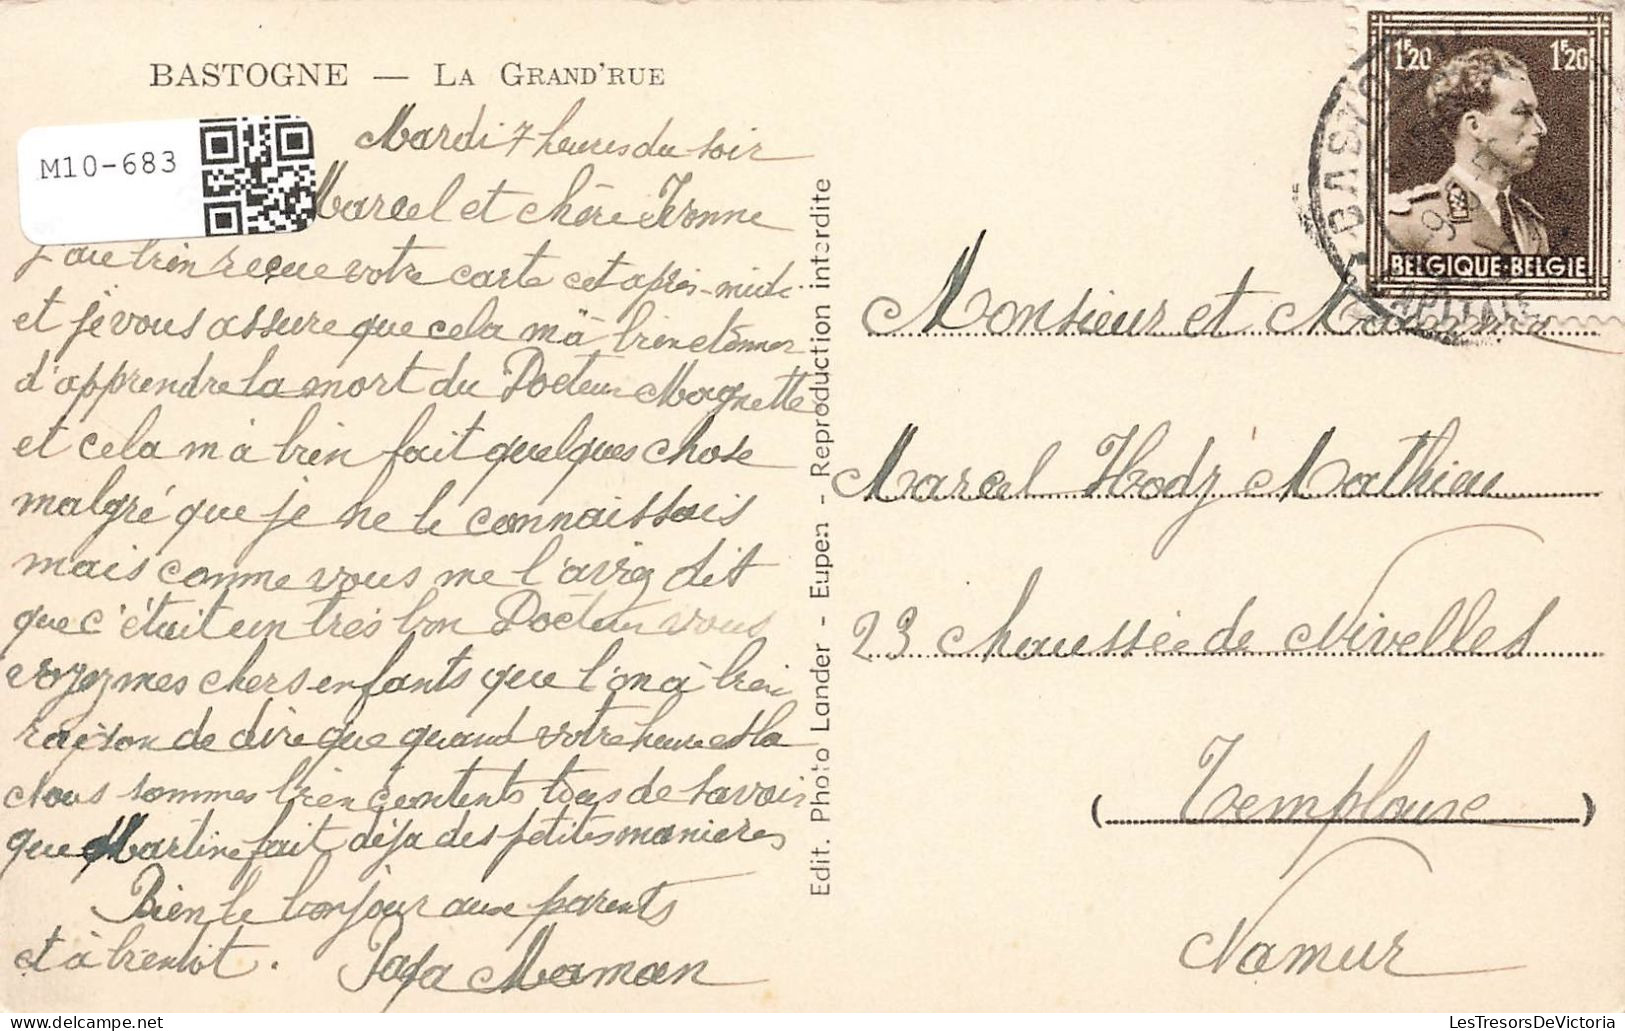 BASTOGNE — LA GRAND'RUE
M10-683
Mardi 7 heures du soir
Marcel et chère Ivonne
J'ai bien reçue votre carte cet après-midi
et je vous assure que cela m'à bien étonner
d'apprendre la mort du Docteur Magnette
et cela m'à bien fait quelques chose
malgré que je ne le connaissais
mais comme vous me l'aviez dit
que c'était un très bon Docteur vous
voyez mes chers enfants que l'on à bien
raison de dire que quand votre heure est la
Nous sommes bien contents tous de savoir
que Martine fait déja des petites manieres
Bien le bonjour aux parents
et à bientot. Papa Maman
Edit. Photo Lander - Eupen - Reproduction interdite
1F20 1F20
BELGIQUE-BELGIE
Monsieur et Madame
Marcel Hody Mathieu
23 chaussée de Nivelles
(Temploux)
Namur
LesTresorsDeVictoria